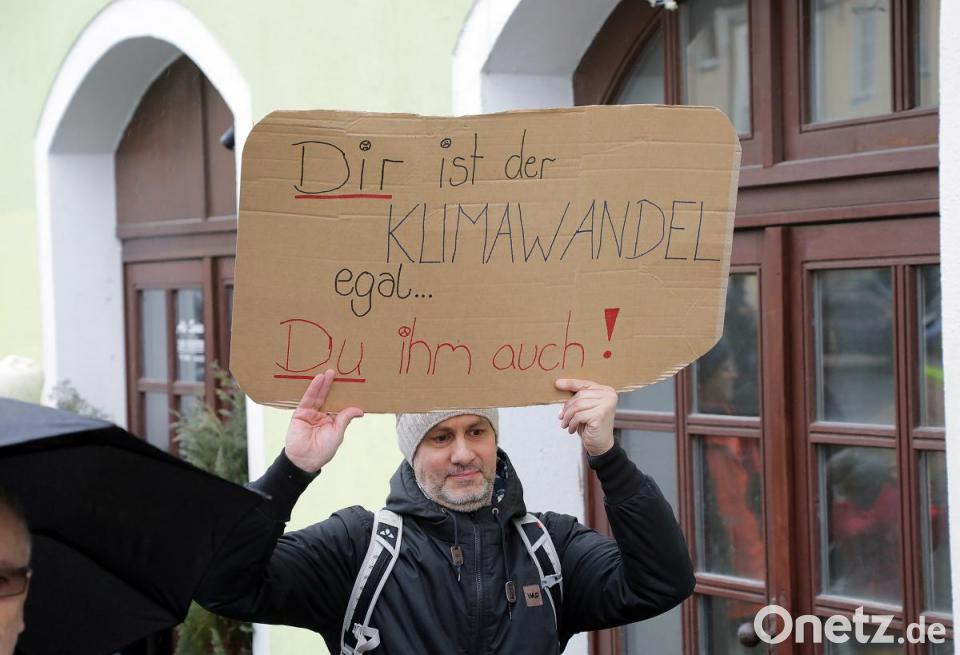 Dir ist der
KLIMAWANDEL
egal...
Du ihm auch!
Onetz.de